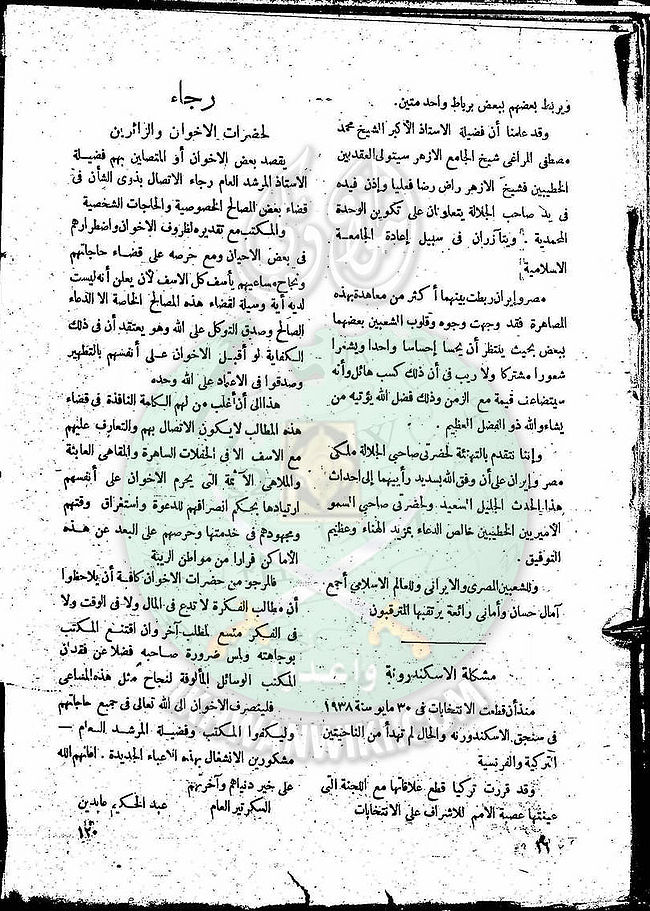 ويربط بعضهم ببعض برباط واحد متين .
وقد علمنا أن فضيلة الاستاذ الأكبر الشيخ محمد
مصطفى المراغى شيخ الجامع الازهر سيتولى العقد بين
الخطيبين فشيخ الازهر راض رضا فعليا وإذن فيده
فى يد صاحب الجلالة يتعاونان على تكوين الوحدة
المحمدية . ويتآزران فى سبيل إعادة الجامعة
الاسلامية
مصر وإيران ربطت بينهما أكثر من معاهدة بهذه
المصاهرة فقد وجهت وجوه وقلوب الشعبين بعضهما
ببعض بحيث ينتظر أن يحسا إحساسا واحدا ويشعرا
شعورا مشتركا ولا ريب فى أن ذلك كسب هائل وأنه
سيتضاعف قيمة مع الزمن وذلك فضل الله يؤتيه من
يشاء والله ذو الفضل العظيم .
وإننا نتقدم بالتهنئة لحضرتى صاحبى الجلالة ملكى
مصر وإيران على أن وفق الله بسديد رأييهما إلى احداث
هذا الحدث الجليل السعيد . ولحضرتى صاحبى السمو
الأميريين الخطيبين خالص الدعاء بمزيد الهناء وعظيم
التوفيق .
وللشعبين المصرى والايرانى وللعالم الاسلامى أجمع
آمال حسان وأمانى رائعة يرتقبها المترقبون
مشكلة الاسكندرونة
منذ أن قطعت الانتخابات فى ٣٠ مايو سنة ١٩٣٨
فى سنجق الاسكندرونه والحال لم تهدأ من الناحيتين
التركية والفرنسية
وقد قررت تركيا قطع علاقاتها مع اللجنة التى
عينتها عصبة الامم للاشراف على الانتخابات
رجاء
لحضرات الاخوان والزائرين
يقصد بعض الاخوان أو المتصلين بهم فضيلة
الاستاذ المرشد العام رجاء الاتصال بذوى الشأن فى
قضاء بعض المصالح الخصوصية والحاجات الشخصية
والمكتب مع تقديره لظروف الاخوان واضطرارهم
فى بعض الاحيان ومع حرصه على قضاء حاجاتهم
ونجاح مساعيهم يأسف كل الاسف لأن يعلن أنه ليست
لديه أية وسيلة لقضاء هذه المصالح الخاصة الا الدعاء
الصالح وصدق التوكل على الله وهو يعتقد أن فى ذلك
الكفاية لو أقبل الاخوان على أنفسهم بالتطهير
وصدقوا فى الاعتماد على الله وحده
هذا الى أن أغلب من لهم الكلمة النافذة فى قضاء
هذه المطالب لا يكون الاتصال بهم والتعارف عليهم
مع الاسف الا فى الحفلات الساهرة والمقاهى العابثة
والملاهى الآثمة التى يحرم الاخوان على أنفسهم
ارتيادها بحكم انصرافهم للدعوة واستغراق وقتهم
ومجهودهم فى خدمتها وحرصهم على البعد عن هذه
الاماكن فرارا من مواطن الريبة
فالمرجو من حضرات الاخوان كافة أن يلاحظوا
أن مطالب الفكرة لا تدع فى المال ولا فى الوقت ولا
فى الفكر متسع لمطلب آخر وان اقتنع المكتب
بوجاهته وبس ضرورة صاحبه فضلا عن فقدان
المكتب الوسائل المألوفة لنجاح مثل هذه المساعى
فلينصرف الاخوان الى الله تعالى فى جميع حاجاتهم
وليكفوا المكتب وفضيلة المرشد العام —
مشكورين الانشغال بهذه الاعباء الجديدة . اعانهم الله
على خير دنياهم وآخرتهم
السكرتير العام
عبد الحكيم عابدين